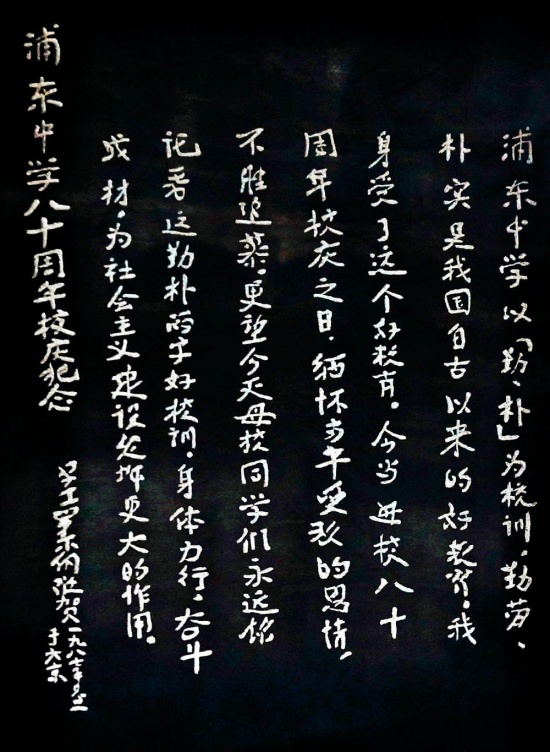 浦东中学以「勤、朴」为校训。勤劳、
朴实是我国自古以来的好教育。我
身受了这个好教育。今当母校八十
周年校庆之日，缅怀当年受教的恩情，
不胜追慕。更望今天母校同学们永远铭
记着这勤朴两字好校训。身体力行。奋斗
成材。为社会主义建设发挥更大的作用。
浦东中学八十周年校庆纪念
学生罗尔纲敬贺一九八
于北京